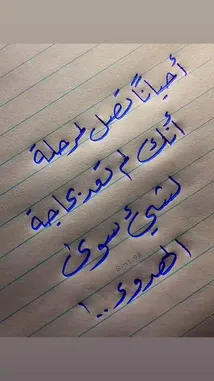 أحياناً تصل لمرحلة
أنك لم تعد بحاجة
لشيئ سوى
الهدوء ..!